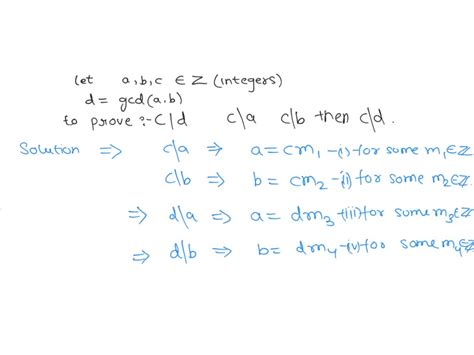 let a,b,c ∈ Z (integers)
d = gcd(a,b)
to prove :- c|d c|a c|b then c|d.
Solution ⇒ c|a ⇒ a = cm₁ -(i) for some m₁∈Z
c|b ⇒ b = cm₂ -(i) for some m₂∈Z
⇒ d|a ⇒ a = dm₃ -(iii) for some m₃∈Z
⇒ d|b ⇒ b = dm₄ -(v) for some m₄∈Z